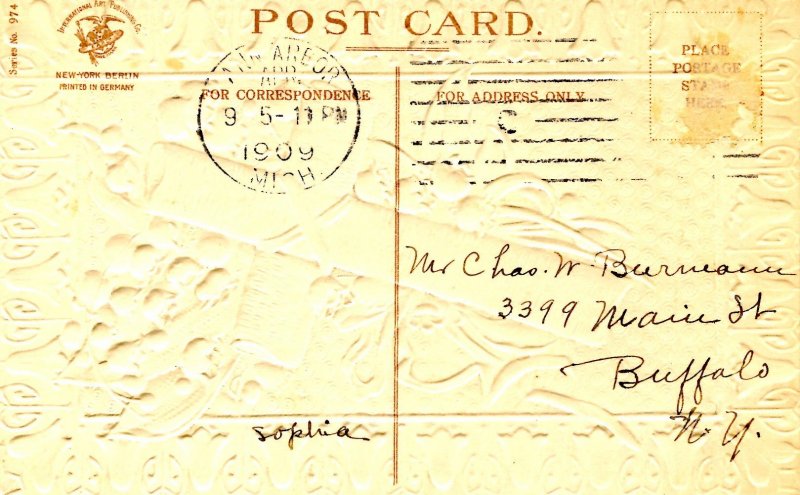 Series No. 974
INTERNATIONAL ART PUBLISHING CO.
NEW-YORK BERLIN
PRINTED IN GERMANY
POST CARD.
PLACE
POSTAGE
STAMP
HERE.
ANN ARBOR
APR
FOR CORRESPONDENCE
FOR ADDRESS ONLY.
9 5-11 PM
C
1909
MICH
Mr Chas. W. Burmann
3399 Main St
Buffalo
N.Y.
Sophia